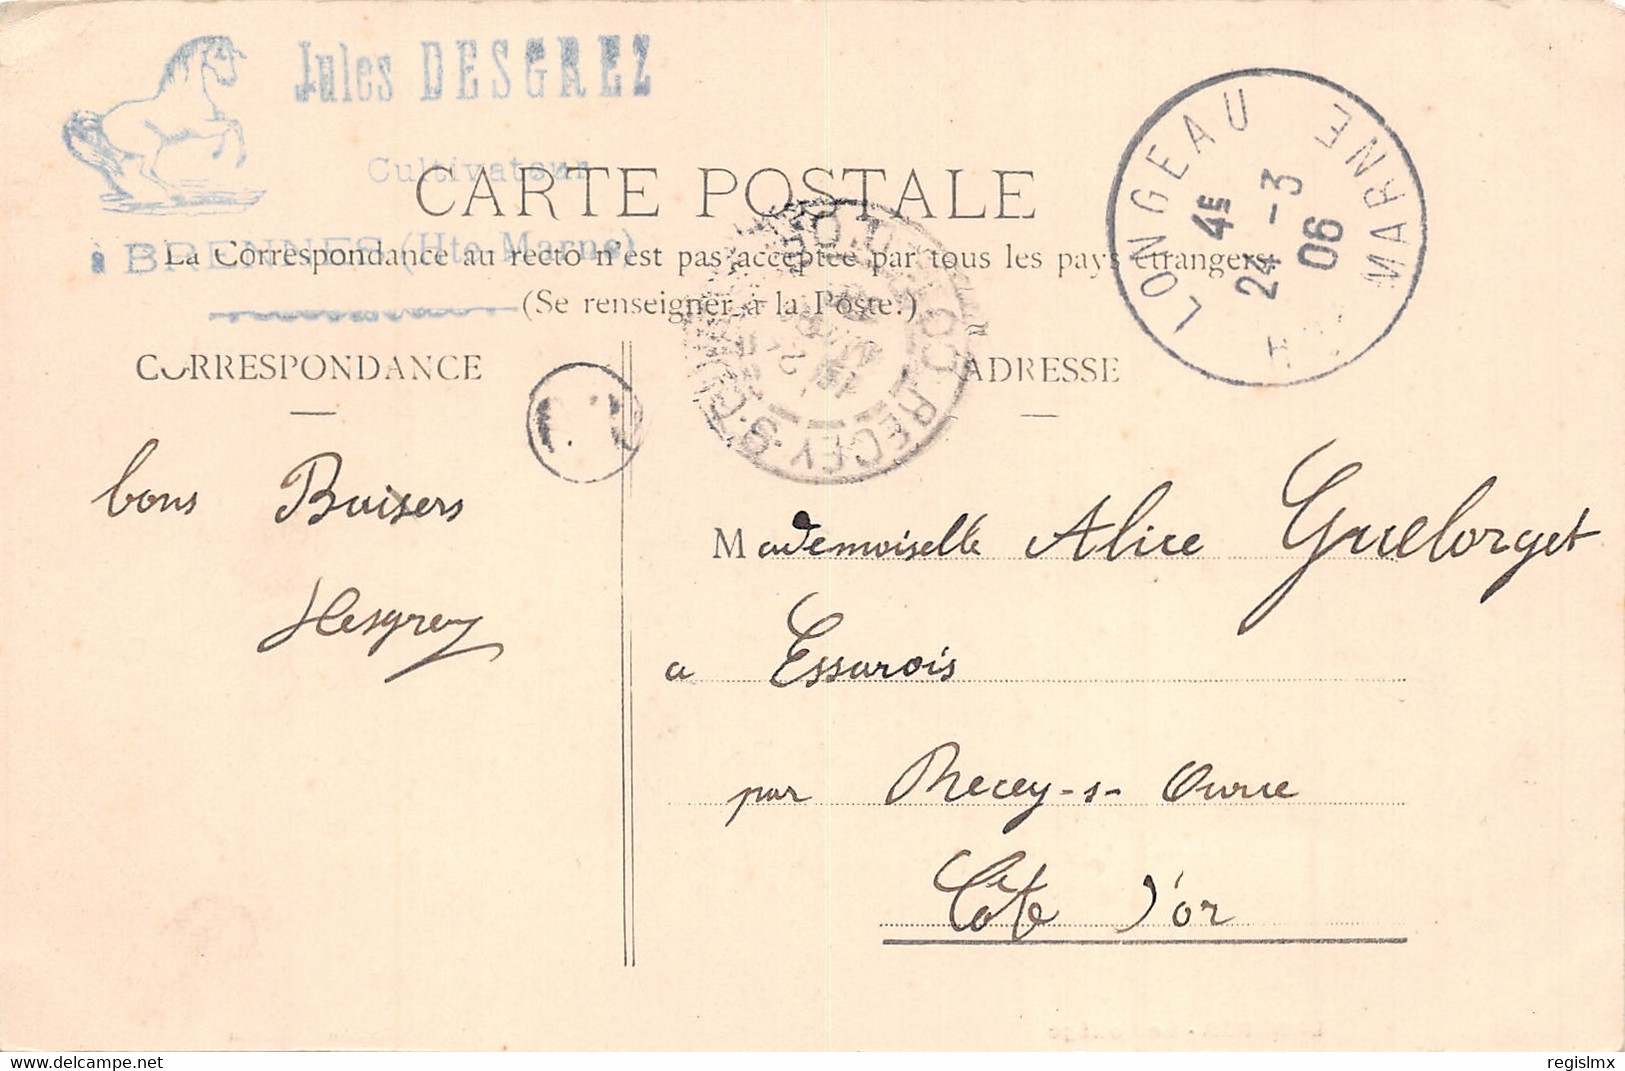 Jules DESGREZ
Cultivateur
à BRENNES (Hte Marne)
CARTE POSTALE
La Correspondance au recto n'est pas acceptée par tous les pays étrangers
(Se renseigner à la Poste.)
LONGEAU
4E
24 -3
06
H MARNE
RECEY-S-OURCE
CÔTE D'OR
CORRESPONDANCE
ADRESSE
bons Baisers
Desgrez
Mademoiselle Alice Guelorget
a Essarois
par Recey-s-Ource
Côte d'or
regislmx
delcampe.net